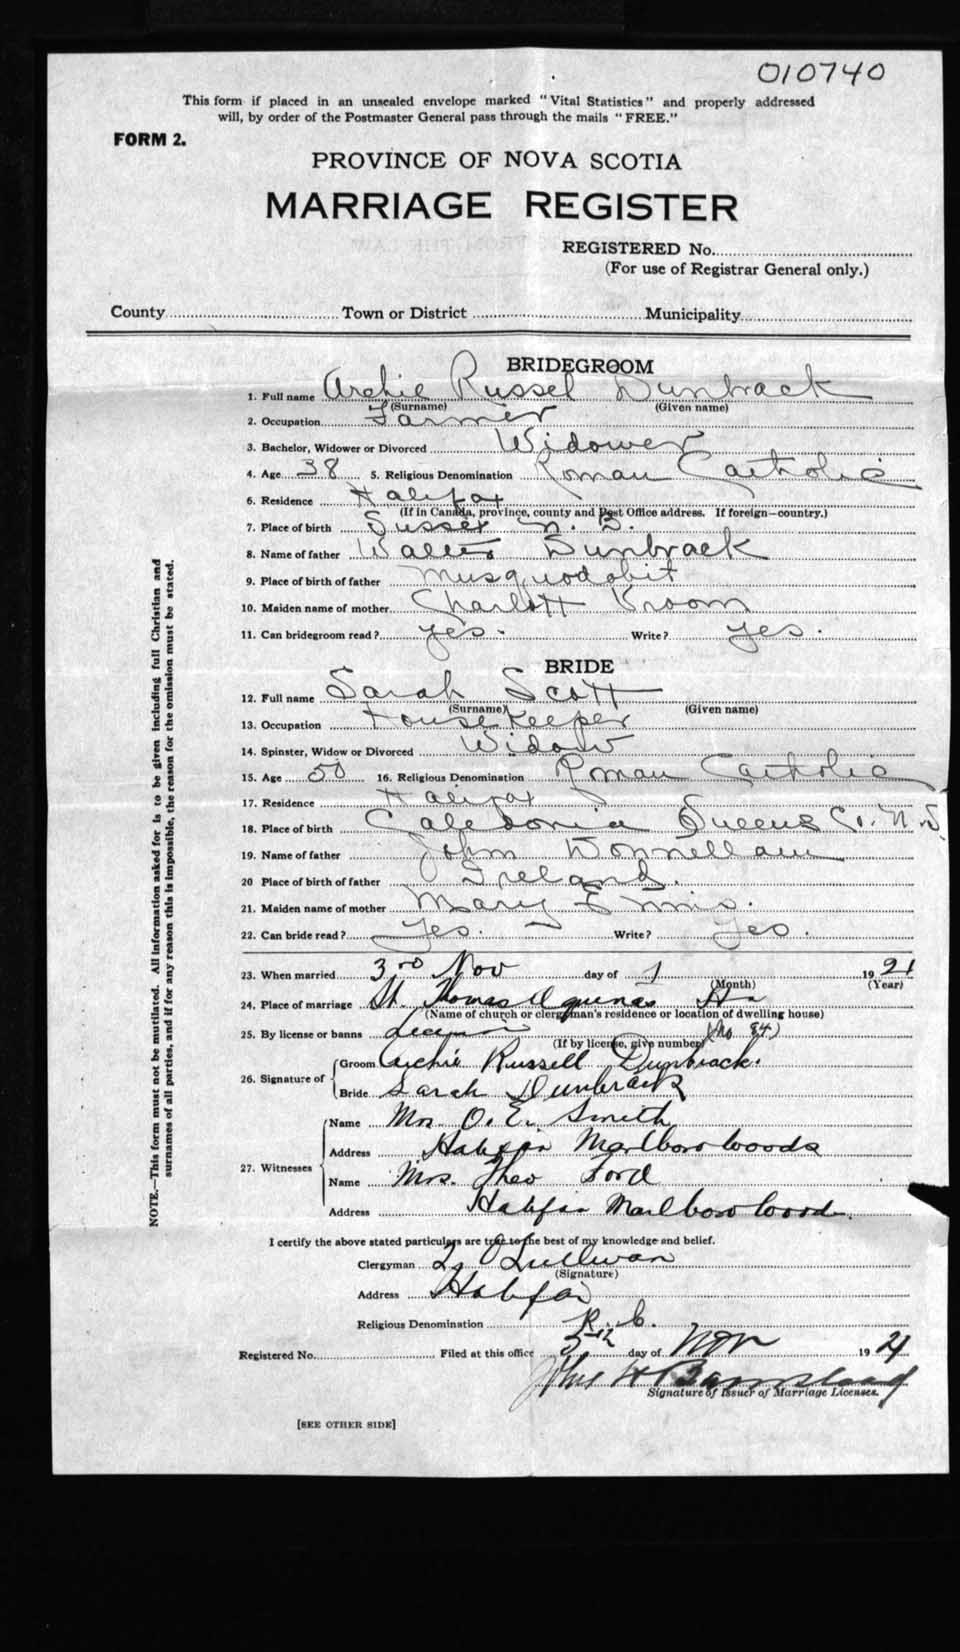 010740
This form if placed in an unsealed envelope marked "Vital Statistics" and properly addressed
will, by order of the Postmaster General pass through the mails "FREE."
FORM 2.
PROVINCE OF NOVA SCOTIA
MARRIAGE REGISTER
REGISTERED No.
(For use of Registrar General only.)
County Town or District Municipality
BRIDEGROOM
1. Full name Archie Russel Dunbrack
(Surname) (Given name)
2. Occupation Farmer
3. Bachelor, Widower or Divorced Widower
4. Age 38 5. Religious Denomination Roman Catholic
6. Residence Halifax
(If in Canada, province, county and Post Office address. If foreign—country.)
7. Place of birth Sussex N. B.
8. Name of father Walter Dunbrack
9. Place of birth of father Musquodobit
10. Maiden name of mother Charlott Kroom
11. Can bridegroom read? yes. Write? yes.
BRIDE
12. Full name Sarah Scott
(Surname) (Given name)
13. Occupation House Keeper
14. Spinster, Widow or Divorced Widow
15. Age 50 16. Religious Denomination Roman Catholic
17. Residence Halifax
18. Place of birth Caledonia Queens Co. N.S.
19. Name of father John Donnellan
20 Place of birth of father Ireland.
21. Maiden name of mother Mary Ennis.
22. Can bride read? Yes. Write? Yes.
23. When married 3rd Nov day of 1921
(Month) (Year)
24. Place of marriage St. Thomas Aquinas Hx
(Name of church or clergyman's residence or location of dwelling house)
25. By license or banns (No 84)
(If by license, give number)
26. Signature of Groom Archie Russell Dunbrack.
Bride Sarah Dunbrack
27. Witnesses
Name Mrs. O. E. Smith
Address Halifax Marlboro Woods
Name Mrs. Theo Ford
Address Halifax Marlboro Woods.
I certify the above stated particulars are true to the best of my knowledge and belief.
Clergyman O'Sullivan
(Signature)
Address Halifax
Religious Denomination R. C.
Registered No. Filed at this office 5th day of Nov 1921
Signature of Issuer of Marriage Licenses.
[SEE OTHER SIDE]
NOTE.—This form must not be mutilated. All information asked for is to be given including full Christian and
surnames of all parties, and if for any reason this is impossible, the reason for the omission must be stated.